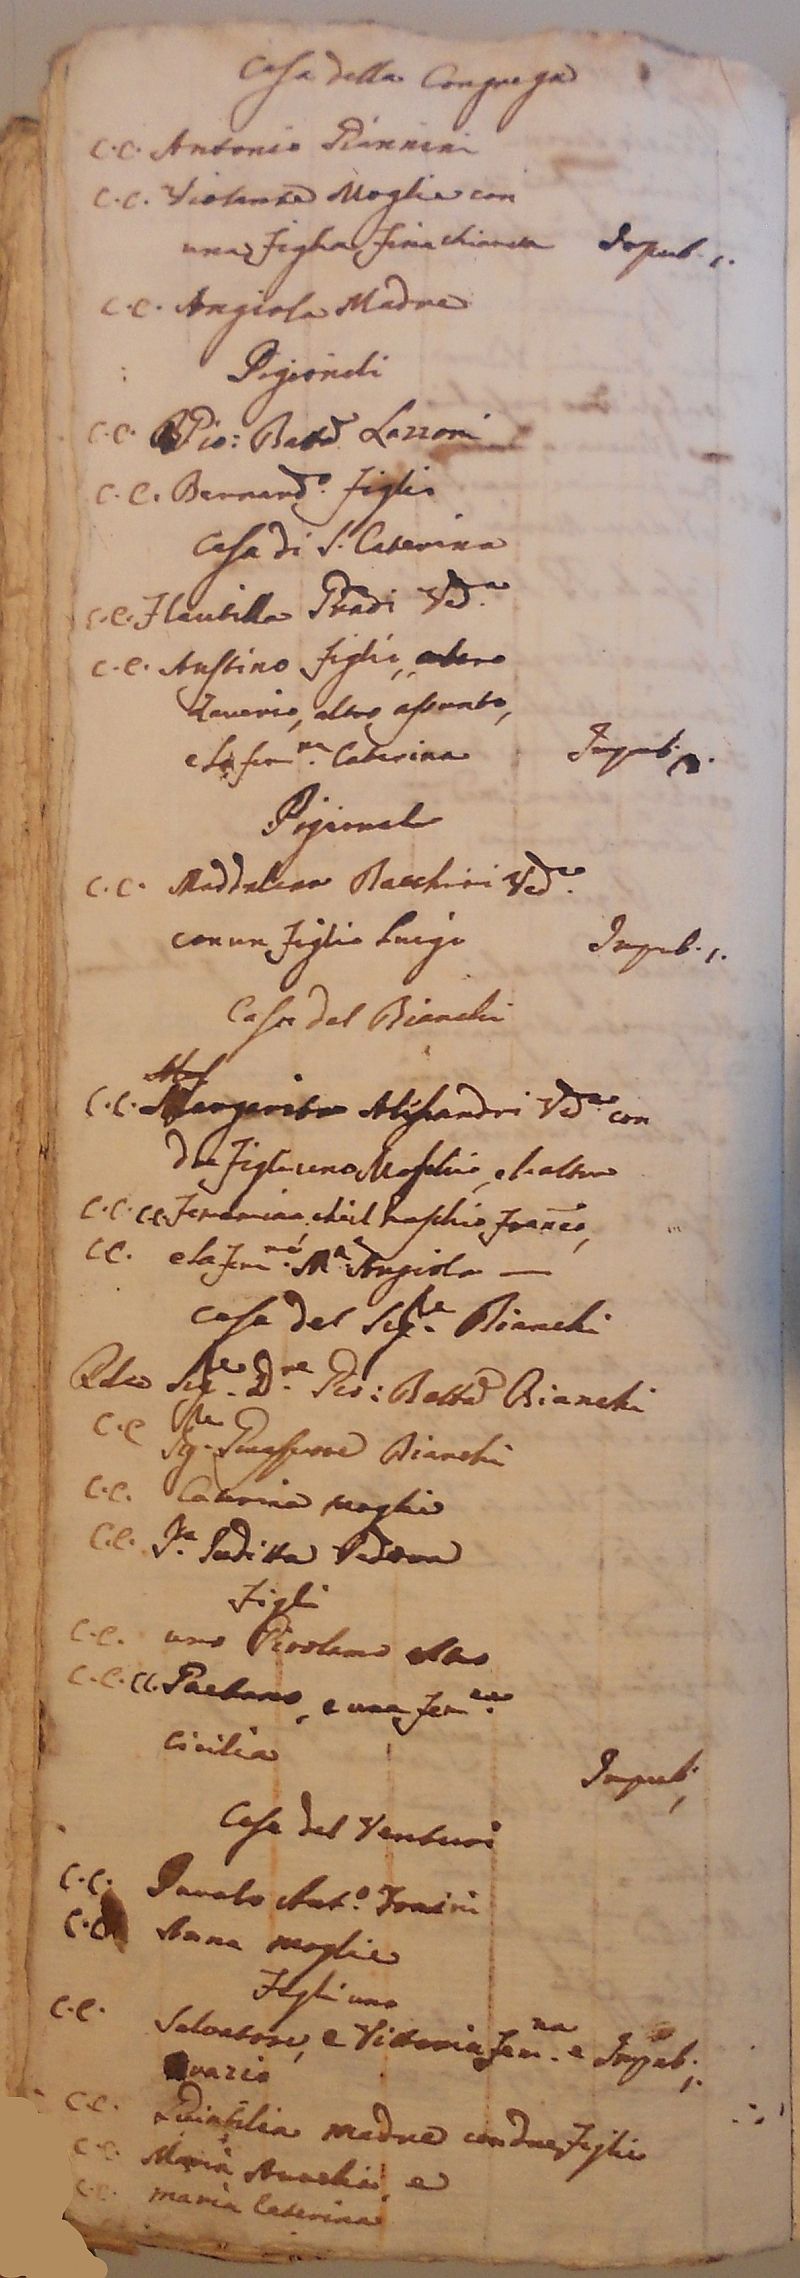 Casa della Congrega
C.C. Antonio Giannini
C.C. Violante Moglie con
una figlia Impub. 1.
C.C. Angiola Madre
Pigionali
C.C. Gio: Batt.a Lazzoni
C.C. Bernard.o figlio
Casa di S. Caterina
C.C. Ved.a
C.C. Austino figlio, altro
Zaverio, altro assente,
e la fem.na Caterina Impub.
Pigionale
C.C. Maddalena Bacchini Ved.a
con un figlio Luigi Impub. 1.
Casa del Bianchi
C.C. Margarita Alisandri Ved.a con
due figli uno Maschio, e l'altra
C.C. CC. che il maschio Franc.o,
CC. e la fem.na M.a Angiola —
Casa del Sig.re Bianchi
Rdo Sig.re D.ne Gio: Batta Bianchi
C.C Sig.re Bianchi
C.C. Catarina moglie
C.C. Giuditta Vedova
Figli
C.C. uno Girolamo altro
C.C. CC. Gaetano, e una fem.na
Cicilia Impub. 1
Casa del Venturi
C.C. Paualo Ant.o
C.C. Anna moglie
Figli uno
C.C. Salvatore, e Vittoria fem.na e Impub. 1.
Orazio
C.C. madre con due figlie
C.C. Maria Aurelia, e
C.C. maria Caterina